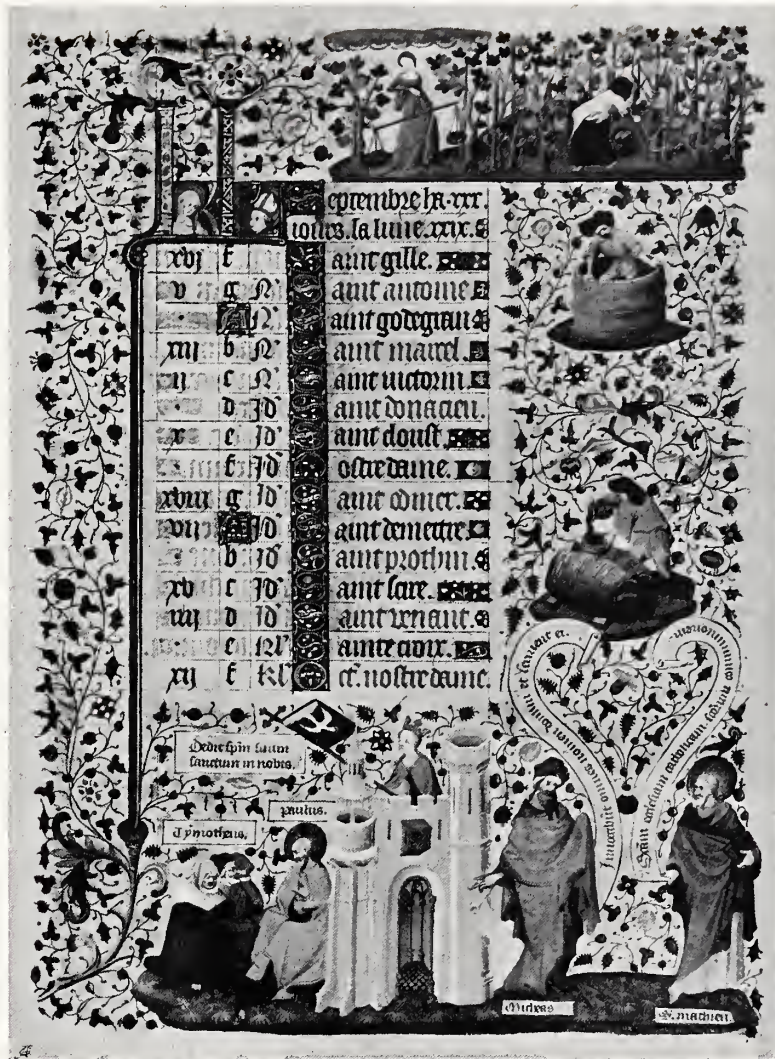 eptembre ha .xxx.
iours. la lune .xxix.
xvj f aint gille.
v g N aint antoine
N aint godegran
xiij b N aint marcel.
ij c N aint uictorin.
d Id aint donacien.
x e Id aint cloust.
f Id ostre dame.
xviij g Id aint omer.
vij Id aint demettre.
b Id aint prothin.
xv c Id aint sire.
iiij d Id aint
e kl ainte croix.
xij f kl nostre dame.
Dedit spm suum
sanctum in nobis.
paulus.
Tymotheus.
Inuocabitis omnes nomen domini et seruient ei
Sanctam ecclesiam catholicam,
Micheas
S. mathieu.